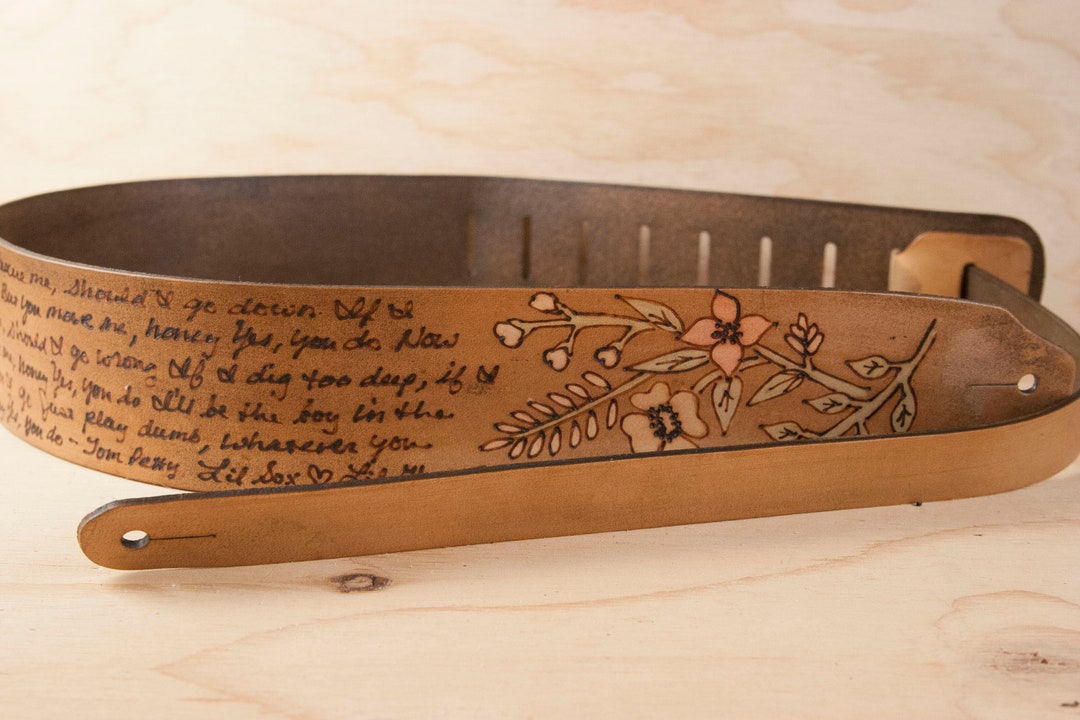 me, should I go down If I
But you move me, honey Yes, you do Now
should I go wrong If I dig too deep, if I
me, honey Yes, you do I'll be the boy in the
go Just play dumb, whatever you
you do - Tom Petty Lil Sox ♡